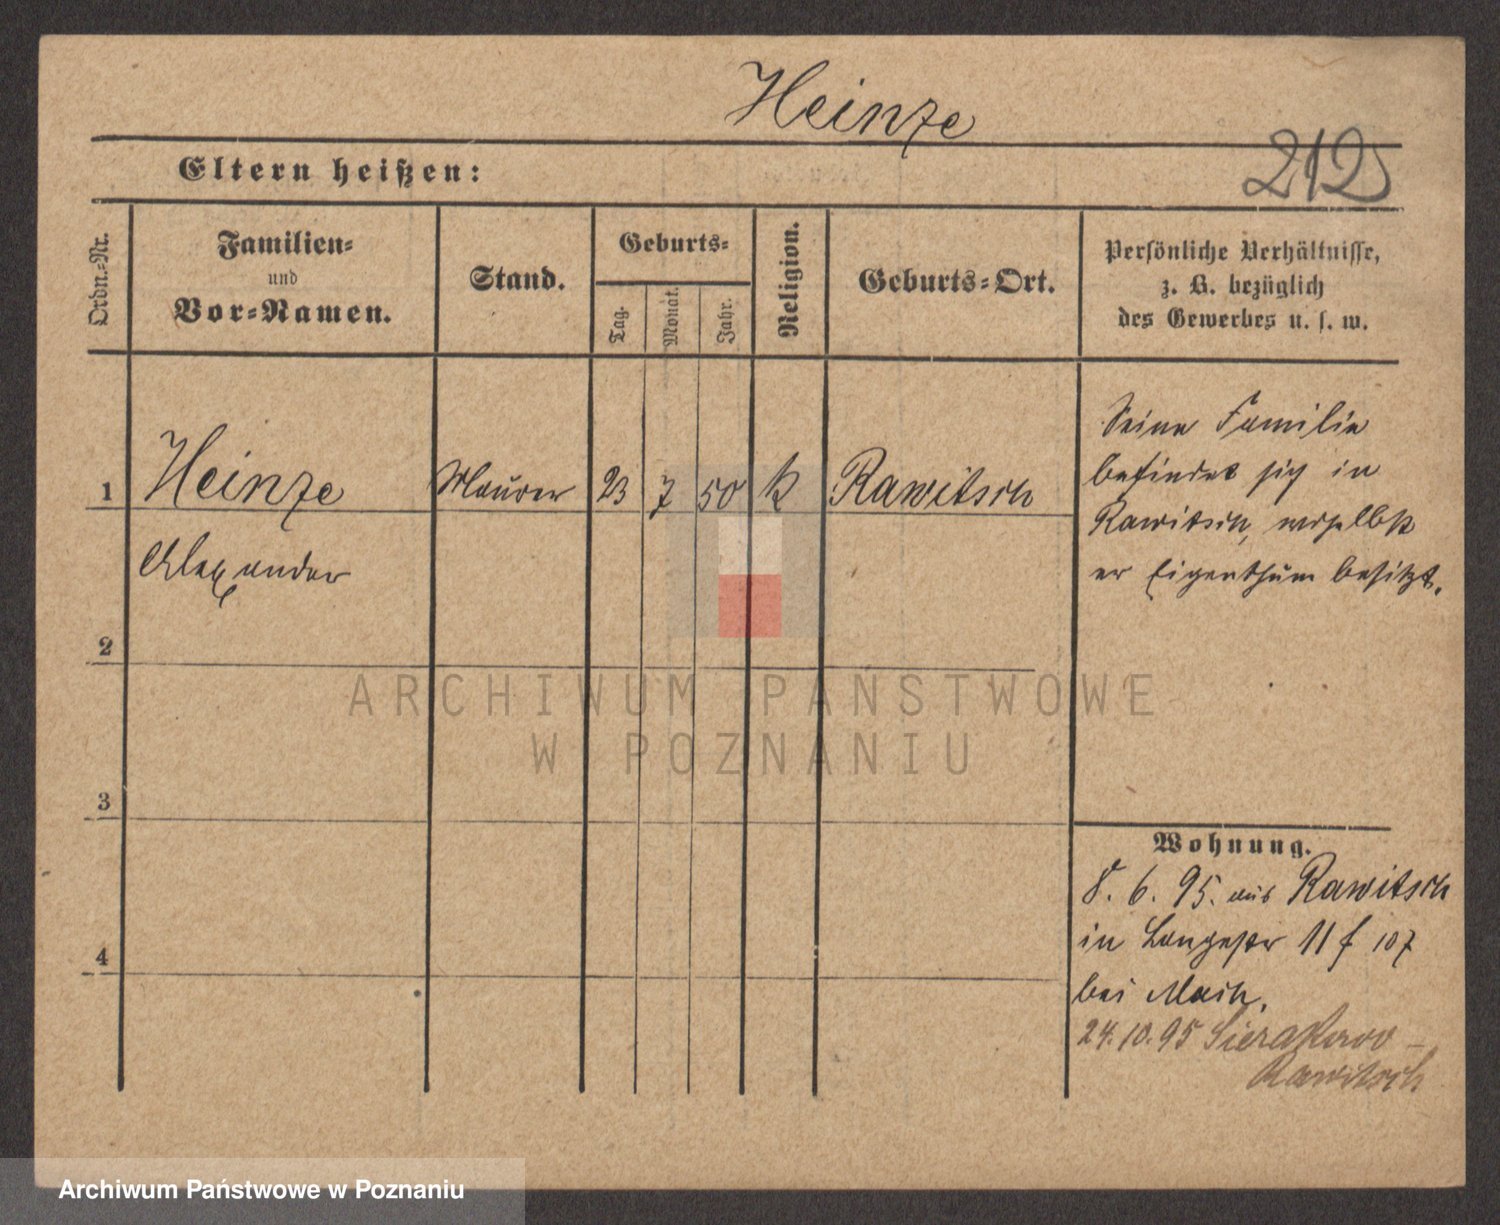 Heinze
212
Eltern heißen:
Ordn.-Nr.
Familien-
und
Vor-Namen.
Stand.
Geburts-
Tag.
Monat.
Jahr.
Religion.
Geburts-Ort.
Persönliche Verhältnisse,
z. B. bezüglich
des Gewerbes u. s. w.
1
Heinze
Maurer
23
7
50
k
Rawitsch
Alexander
Seine Familie
befindet sich in
Rawitsch, woselbst
er Eigenthum besitzt.
2
3
4
Wohnung.
8. 6. 95. aus Rawitsch
in Langestr 11 f 107
bei
24.10.95 Sierakowo -
Rawitsch
ARCHIWUM PAŃSTWOWE
W POZNANIU
Archiwum Państwowe w Poznaniu